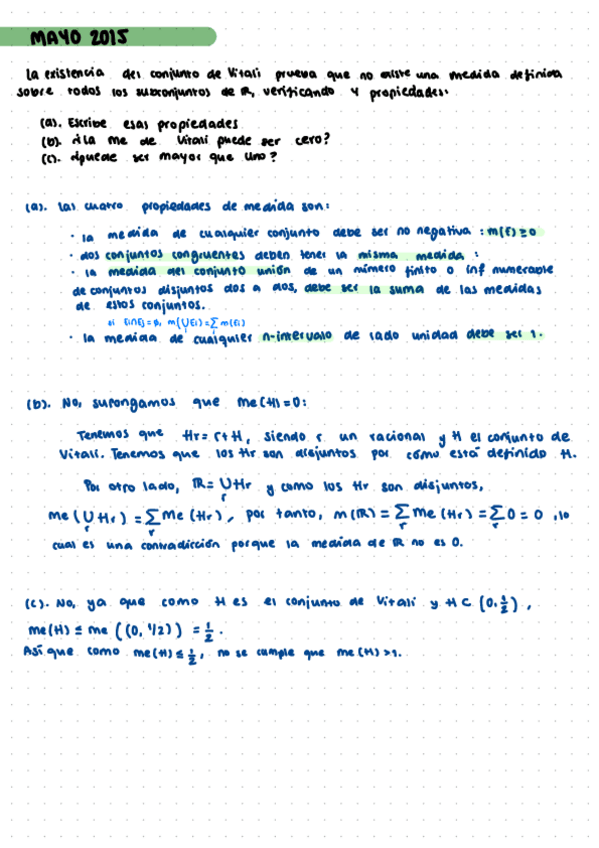 MAYO 2015
La existencia del conjunto de Vitali prueba que no existe una medida definida
sobre todos los subconjuntos de ℝ, verificando 4 propiedades:
(a). Escribe esas propiedades
(b). ¿La me de Vitali puede ser cero?
(c). ¿puede ser mayor que uno?
(a). Las cuatro propiedades de medida son:
· la medida de cualquier conjunto debe ser no negativa : m(E) ≥ 0
· dos conjuntos congruentes deben tener la misma medida :
· la medida del conjunto unión de un número finito o inf numerable
de conjuntos disjuntos dos a dos, debe ser la suma de las medidas
de estos conjuntos.
si Ei∩Ej = ∅, m(∪Ei) = ∑ m(Ei)
· la medida de cualquier n-intervalo de lado unidad debe ser 1.
(b). No, supongamos que me(H) = 0:
Tenemos que Hr = r + H, siendo r un racional y H el conjunto de
Vitali. Tenemos que los Hr son disjuntos por cómo está definido H.
Por otro lado, ℝ = ∪r Hr y como los Hr son disjuntos,
me(∪r Hr) = ∑r me(Hr), por tanto, m(ℝ) = ∑r me(Hr) = ∑r 0 = 0, lo
cual es una contradicción porque la medida de ℝ no es 0.
(c). No, ya que como H es el conjunto de Vitali y H ⊂ (0, 1/2),
me(H) ≤ me((0, 1/2)) = 1/2.
Así que como me(H) ≤ 1/2, no se cumple que me(H) > 1.